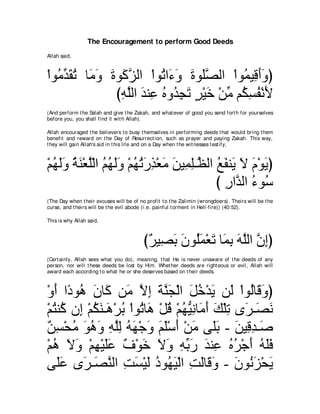 The Encouragement to perform Good Deeds
Allah said,
(وَأَقِيمُواْ الصَّلَوةَ وَءَاتُواْ الزَّكَوةَ وَمَا تُقَدِّمُواْ
لأَنْفُسِكُم مِّنْ خَيْرٍ تَجِدُوهُ عِندَ اللَّهِ)
(And perform the Salah and give the Zakah, and whatever of good you send forth for yourselves
before you, you shall find it with Allah),
Allah encouraged the believers to busy themselves in performing deeds that would bring them
benefit and reward on the Day of Resurrection, such as prayer and paying Zakah. This way,
they will gain Allah's aid in this life and on a Day when the witnesses testify,
(يَوْمَ لاَ يَنفَعُ الظَّـلِمِينَ مَعْذِرَتُهُمْ وَلَهُمُ الْلَّعْنَةُ وَلَهُمْ
سُوءُ الدَّارِ )
(The Day when their excuses will be of no profit to the Zalimin (wrongdoers). Theirs will be the
curse, and theirs will be the evil abode (i.e. painful torment in Hell-fire)) (40:52).
This is why Allah said,
(إِنَّ اللَّهَ بِمَا تَعْمَلُونَ بَصِيرٌ)
(Certainly, Allah sees what you do), meaning, that He is never unaware of the deeds of any
person, nor will these deeds be lost by Him. Whether deeds are righteous or evil, Allah will
award each according to what he or she deserves based on their deeds.
(وَقَالُواْ لَن يَدْخُلَ الْجَنَّةَ إِلاَّ مَن كَانَ هُودًا أَوْ
نَصَـرَى تِلْكَ أَمَانِيُّهُمْ قُلْ هَاتُواْ بُرْهَـنَكُمْ إِن كُنتُمْ
صَـدِقِينَ - بَلَى مَنْ أَسْلَمَ وَجْهَهُ لِلَّهِ وَهُوَ مُحْسِنٌ
فَلَهُ أَجْرُهُ عِندَ رَبِّهِ وَلاَ خَوْفٌ عَلَيْهِمْ وَلاَ هُمْ
يَحْزَنُونَ - وَقَالَتِ الْيَهُودُ لَيْسَتِ النَّصَـرَى عَلَى